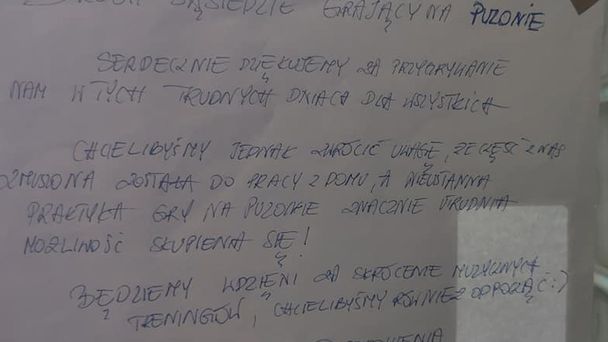 DROGI SĄSIEDZIE GRAJĄCY NA PUZONIE
SERDECZNIE DZIĘKUJEMY ZA PRZYGRYWANIE
NAM W TYCH TRUDNYCH DNIACH DLA WSZYSTKICH
CHCIELIBYŚMY JEDNAK ZWRÓCIĆ UWAGĘ, ŻE CZĘŚĆ Z NAS
ZMUSZONA ZOSTAŁA DO PRACY Z DOMU, A NIEUSTANNA
PRAKTYKA GRY NA PUZONIE ZNACZNIE UTRUDNIA
MOŻLIWOŚĆ SKUPIENIA SIĘ!
BĘDZIEMY WDZIĘNI ZA SKRÓCENIE MUZYCZNYCH
TRENINGÓW, CHCIELIBYŚMY RÓWNIEŻ ODPOCZĄĆ :)